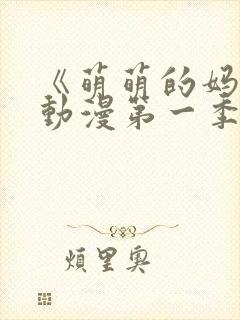 《萌萌的妈
動漫第一季
煩里奥